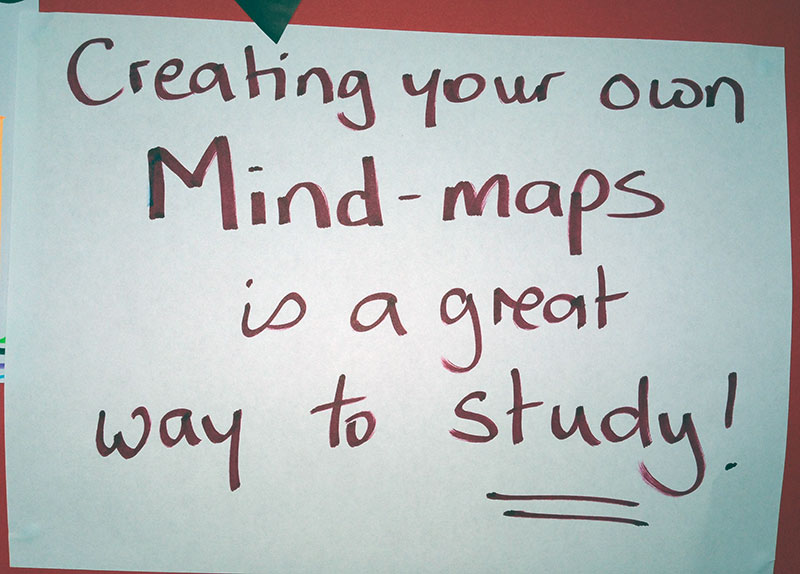 Creating your own
Mind-maps
is a great
way to study!